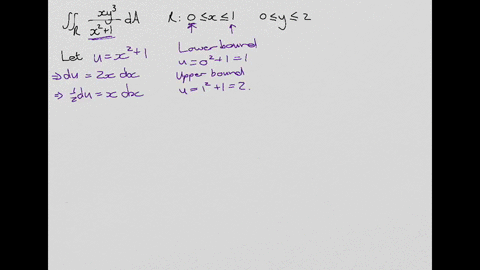 ∬_R xy³/(x²+1) dA   R: 0 ≤ x ≤ 1   0 ≤ y ≤ 2
Let u = x²+1
⇒ du = 2x dx
⇒ ½ du = x dx
Lower bound
u = 0²+1 = 1
Upper bound
u = 1²+1 = 2.